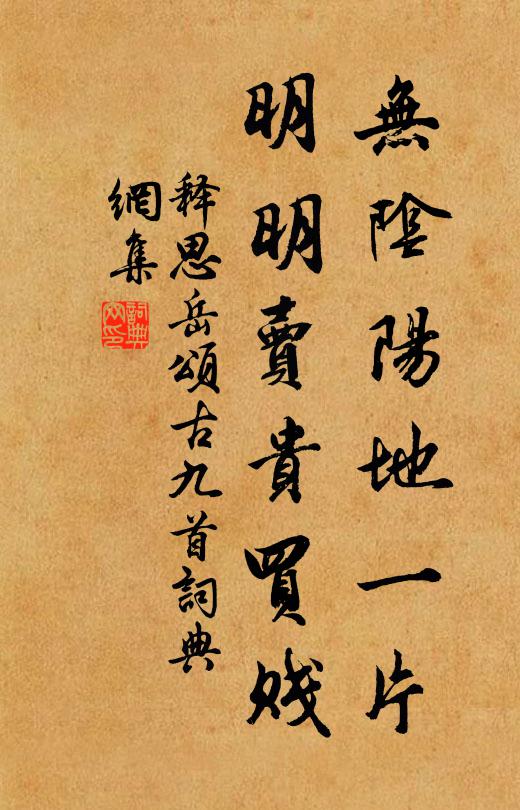 無陰陽地一片
明明賣貴買賤
释思岳頌古九首詞典
網集
詞典